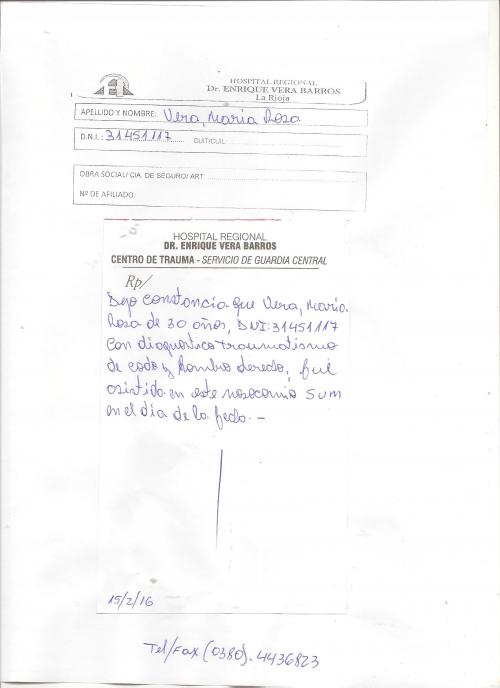 HOSPITAL REGIONAL
Dr. ENRIQUE VERA BARROS
La Rioja
APELLIDO Y NOMBRE: Vera, María Rosa
D.N.I.: 31451117 CUIT/CUIL:
OBRA SOCIAL/ CIA. DE SEGURO/ ART:
Nº DE AFILIADO:
HOSPITAL REGIONAL
DR. ENRIQUE VERA BARROS
CENTRO DE TRAUMA - SERVICIO DE GUARDIA CENTRAL
Rp/
Dejo constancia que Vera, María
Rosa de 30 años, DNI: 31451117
con diagnóstico traumatismo
de codo y hombro derecho, fué
asistida en este nosocomio SUM
en el día de la fecha. -
15/2/16
Tel/Fax (0380). 4436823